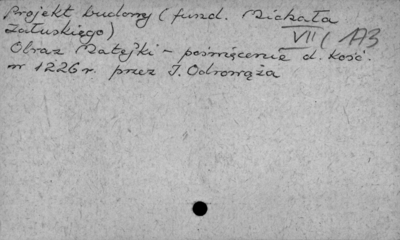 Projekt budowy (fund. Michała
Załuskiego) VII/173
Obraz Matejki - poświęcenie d. kość.
w 1226 r. przez J. Odrowąża